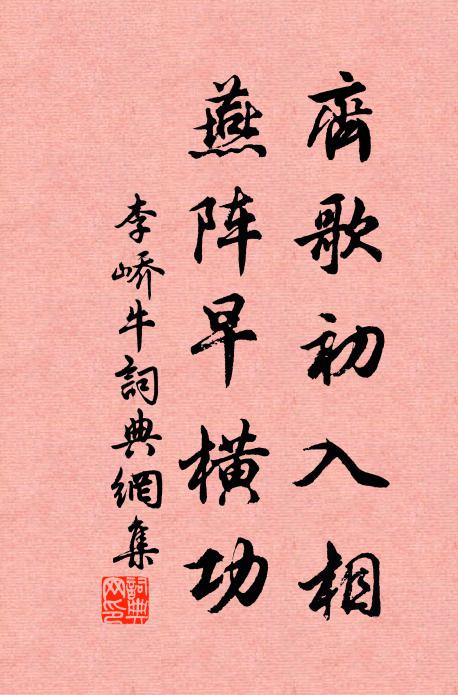 齊歌初入相
燕阵早橫功
李嶠牛詞典網集
詞典网印